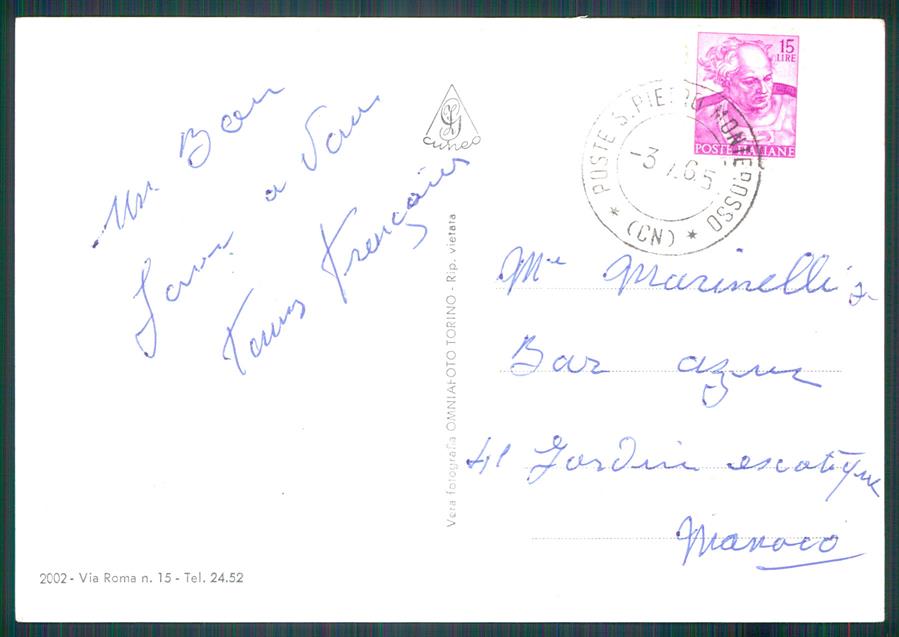 Un Bon
a
2002 - Via Roma n. 15 - Tel. 24.52
cuneo
Vera fotografia OMNIAFOTO TORINO - Rip. vietata
15
LIRE
POSTE ITALIANE
POSTE S. PIETRO MONTEROSSO
-3 7.65
* (CN) *
Marinelli
Bar azur
41 Jardin escotique
Manoco